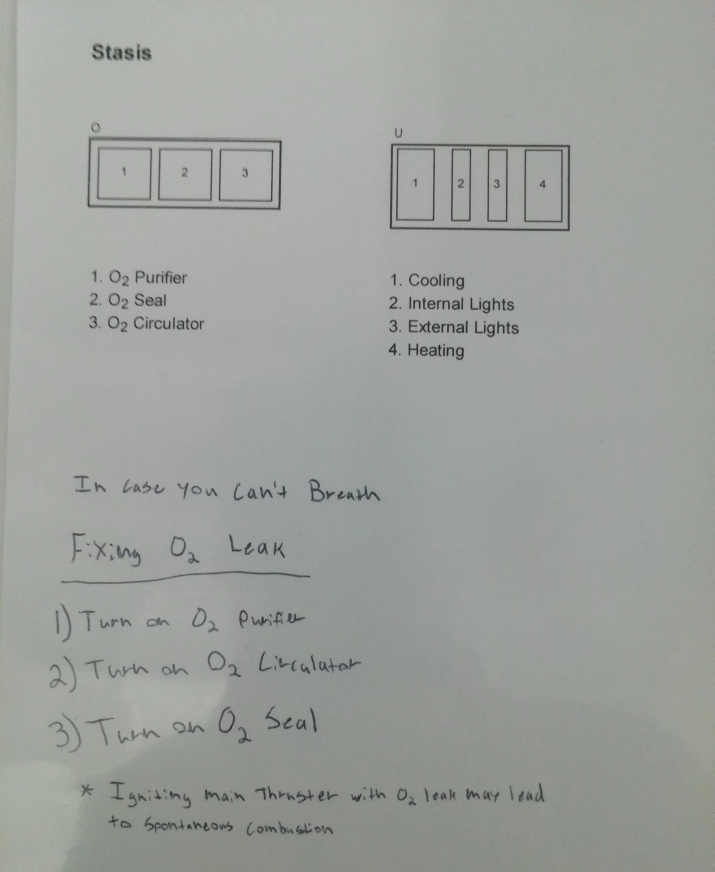 Stasis
O
1 2 3
1. O₂ Purifier
2. O₂ Seal
3. O₂ Circulator
U
1 2 3 4
1. Cooling
2. Internal Lights
3. External Lights
4. Heating
In case you can't Breath
Fixing O₂ Leak
1) Turn on O₂ Purifier
2) Turn on O₂ Circulator
3) Turn on O₂ Seal
* Igniting main Thruster with O₂ leak may lead
to spontaneous combustion